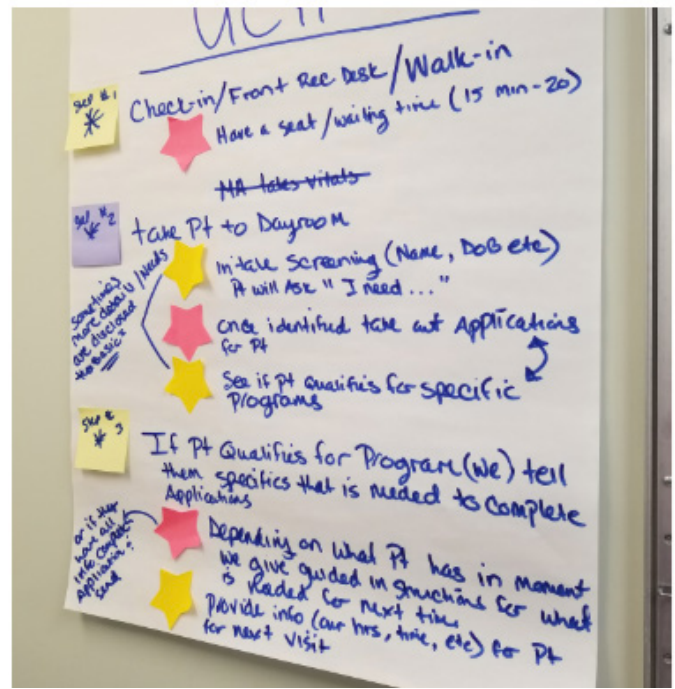 Step #1
*
Check-in/Front Rec Desk/Walk-in
Have a seat/waiting time (15 min-20)
MA takes vitals
Step #2
*
take Pt to Dayroom
Intake Screening (Name, DoB etc)
Pt will Ask "I need..."
sometimes
more details/Needs
are disclosed
to basic
once identified take out Applications
for Pt
See if Pt Qualifies for specific
Programs
Step #
* 3
If Pt Qualifies for Program (we) tell
them specifics that is needed to complete
Applications
or if they
have all
info complete
Application &
send
Depending on what Pt has in moment
we give guided instructions for what
is needed for next time
Provide info (our hrs, time, etc) for Pt
for next visit